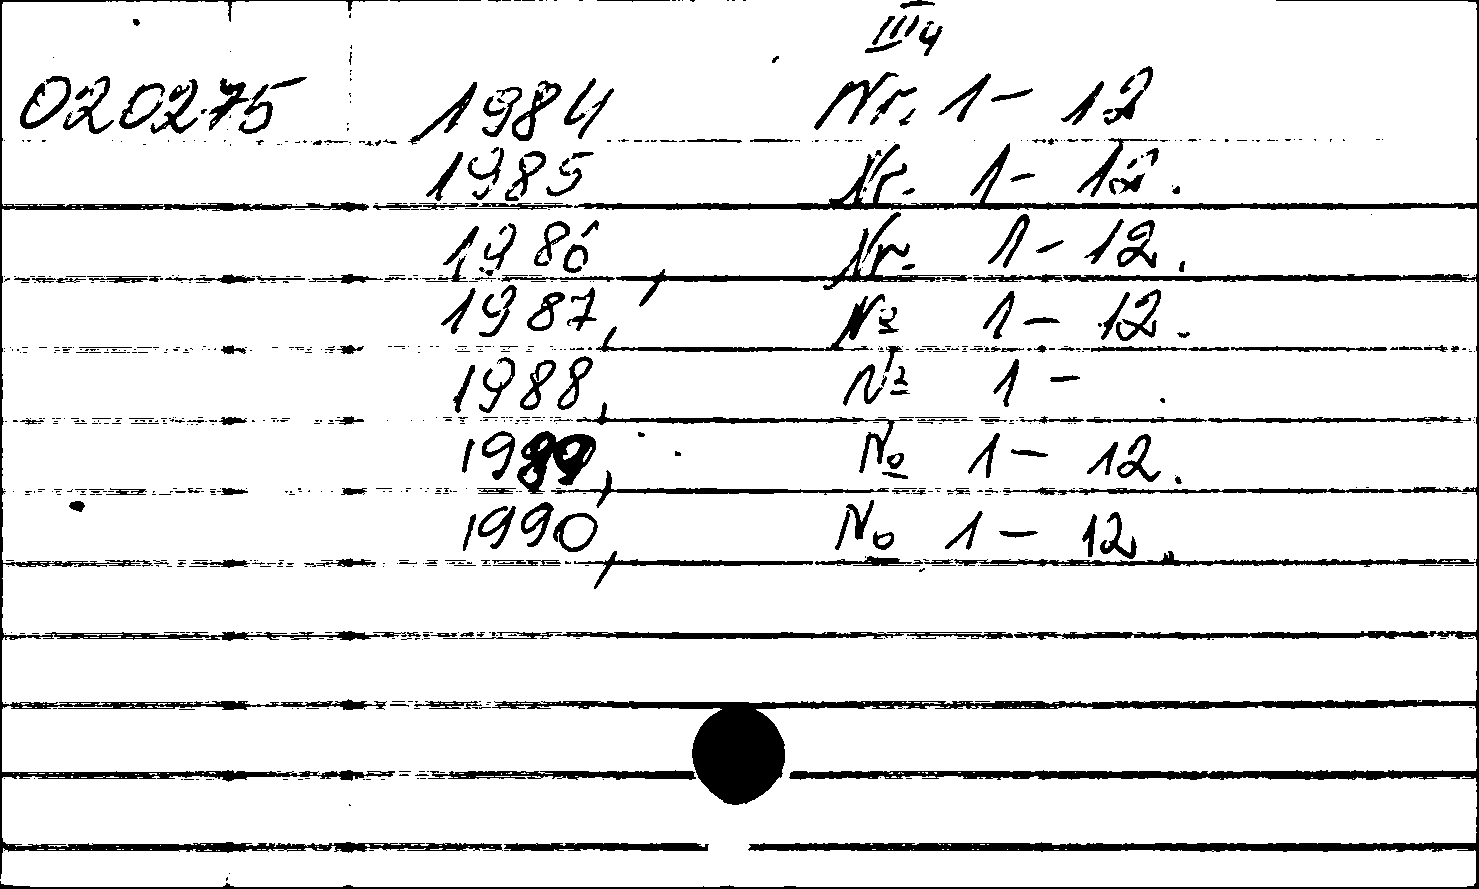 III4
020275 1984 Nr. 1 - 12
1985 Nr. 1 - 12.
1986, Nr. 1 - 12.
1987, № 1 - 12.
1988, № 1 -
1989, № 1 - 12.
1990, № 1 - 12.